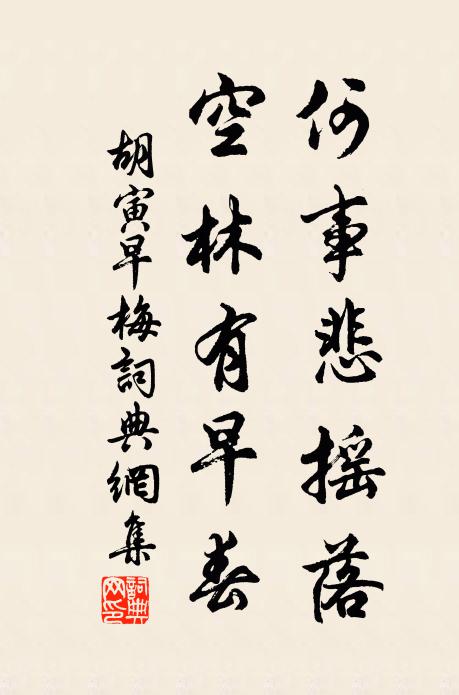 何事悲摇落
空林有早春
胡寅早梅詞典網集
詞典网印